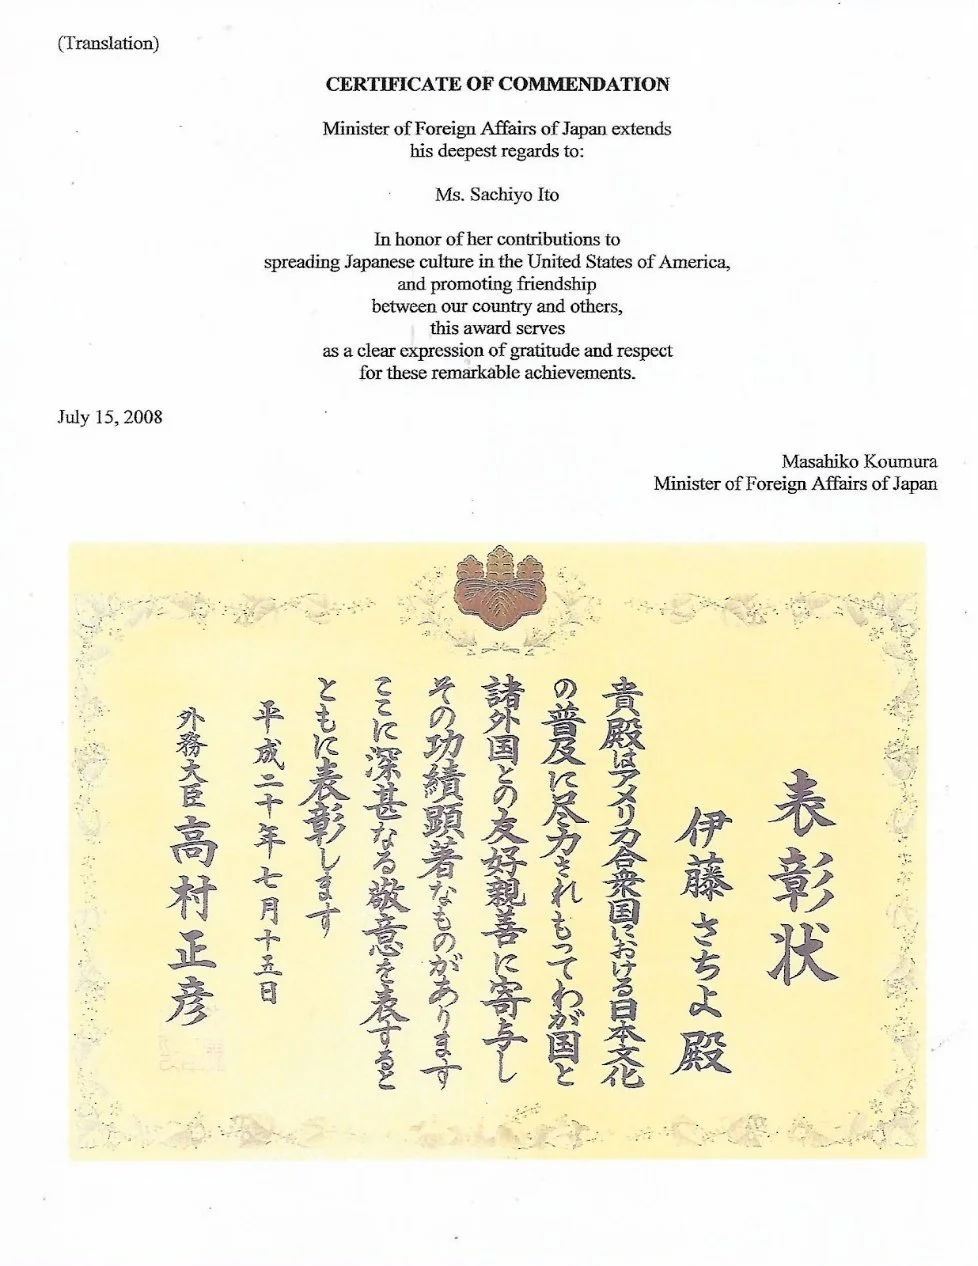 (Translation)
CERTIFICATE OF COMMENDATION
Minister of Foreign Affairs of Japan extends
his deepest regards to:
Ms. Sachiyo Ito
In honor of her contributions to
spreading Japanese culture in the United States of America,
and promoting friendship
between our country and others,
this award serves
as a clear expression of gratitude and respect
for these remarkable achievements.
July 15, 2008
Masahiko Koumura
Minister of Foreign Affairs of Japan
表彰状
伊藤さちよ殿
貴殿はアメリカ合衆国における日本文化
の普及に尽力されもってわが国と
諸外国との友好親善に寄与し
その功績顕著なものがあります
ここに深甚なる敬意を表すると
ともに表彰します
平成二十年七月十五日
外務大臣 高村正彦